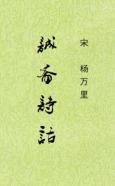 宋 杨万里
誠斋詩話